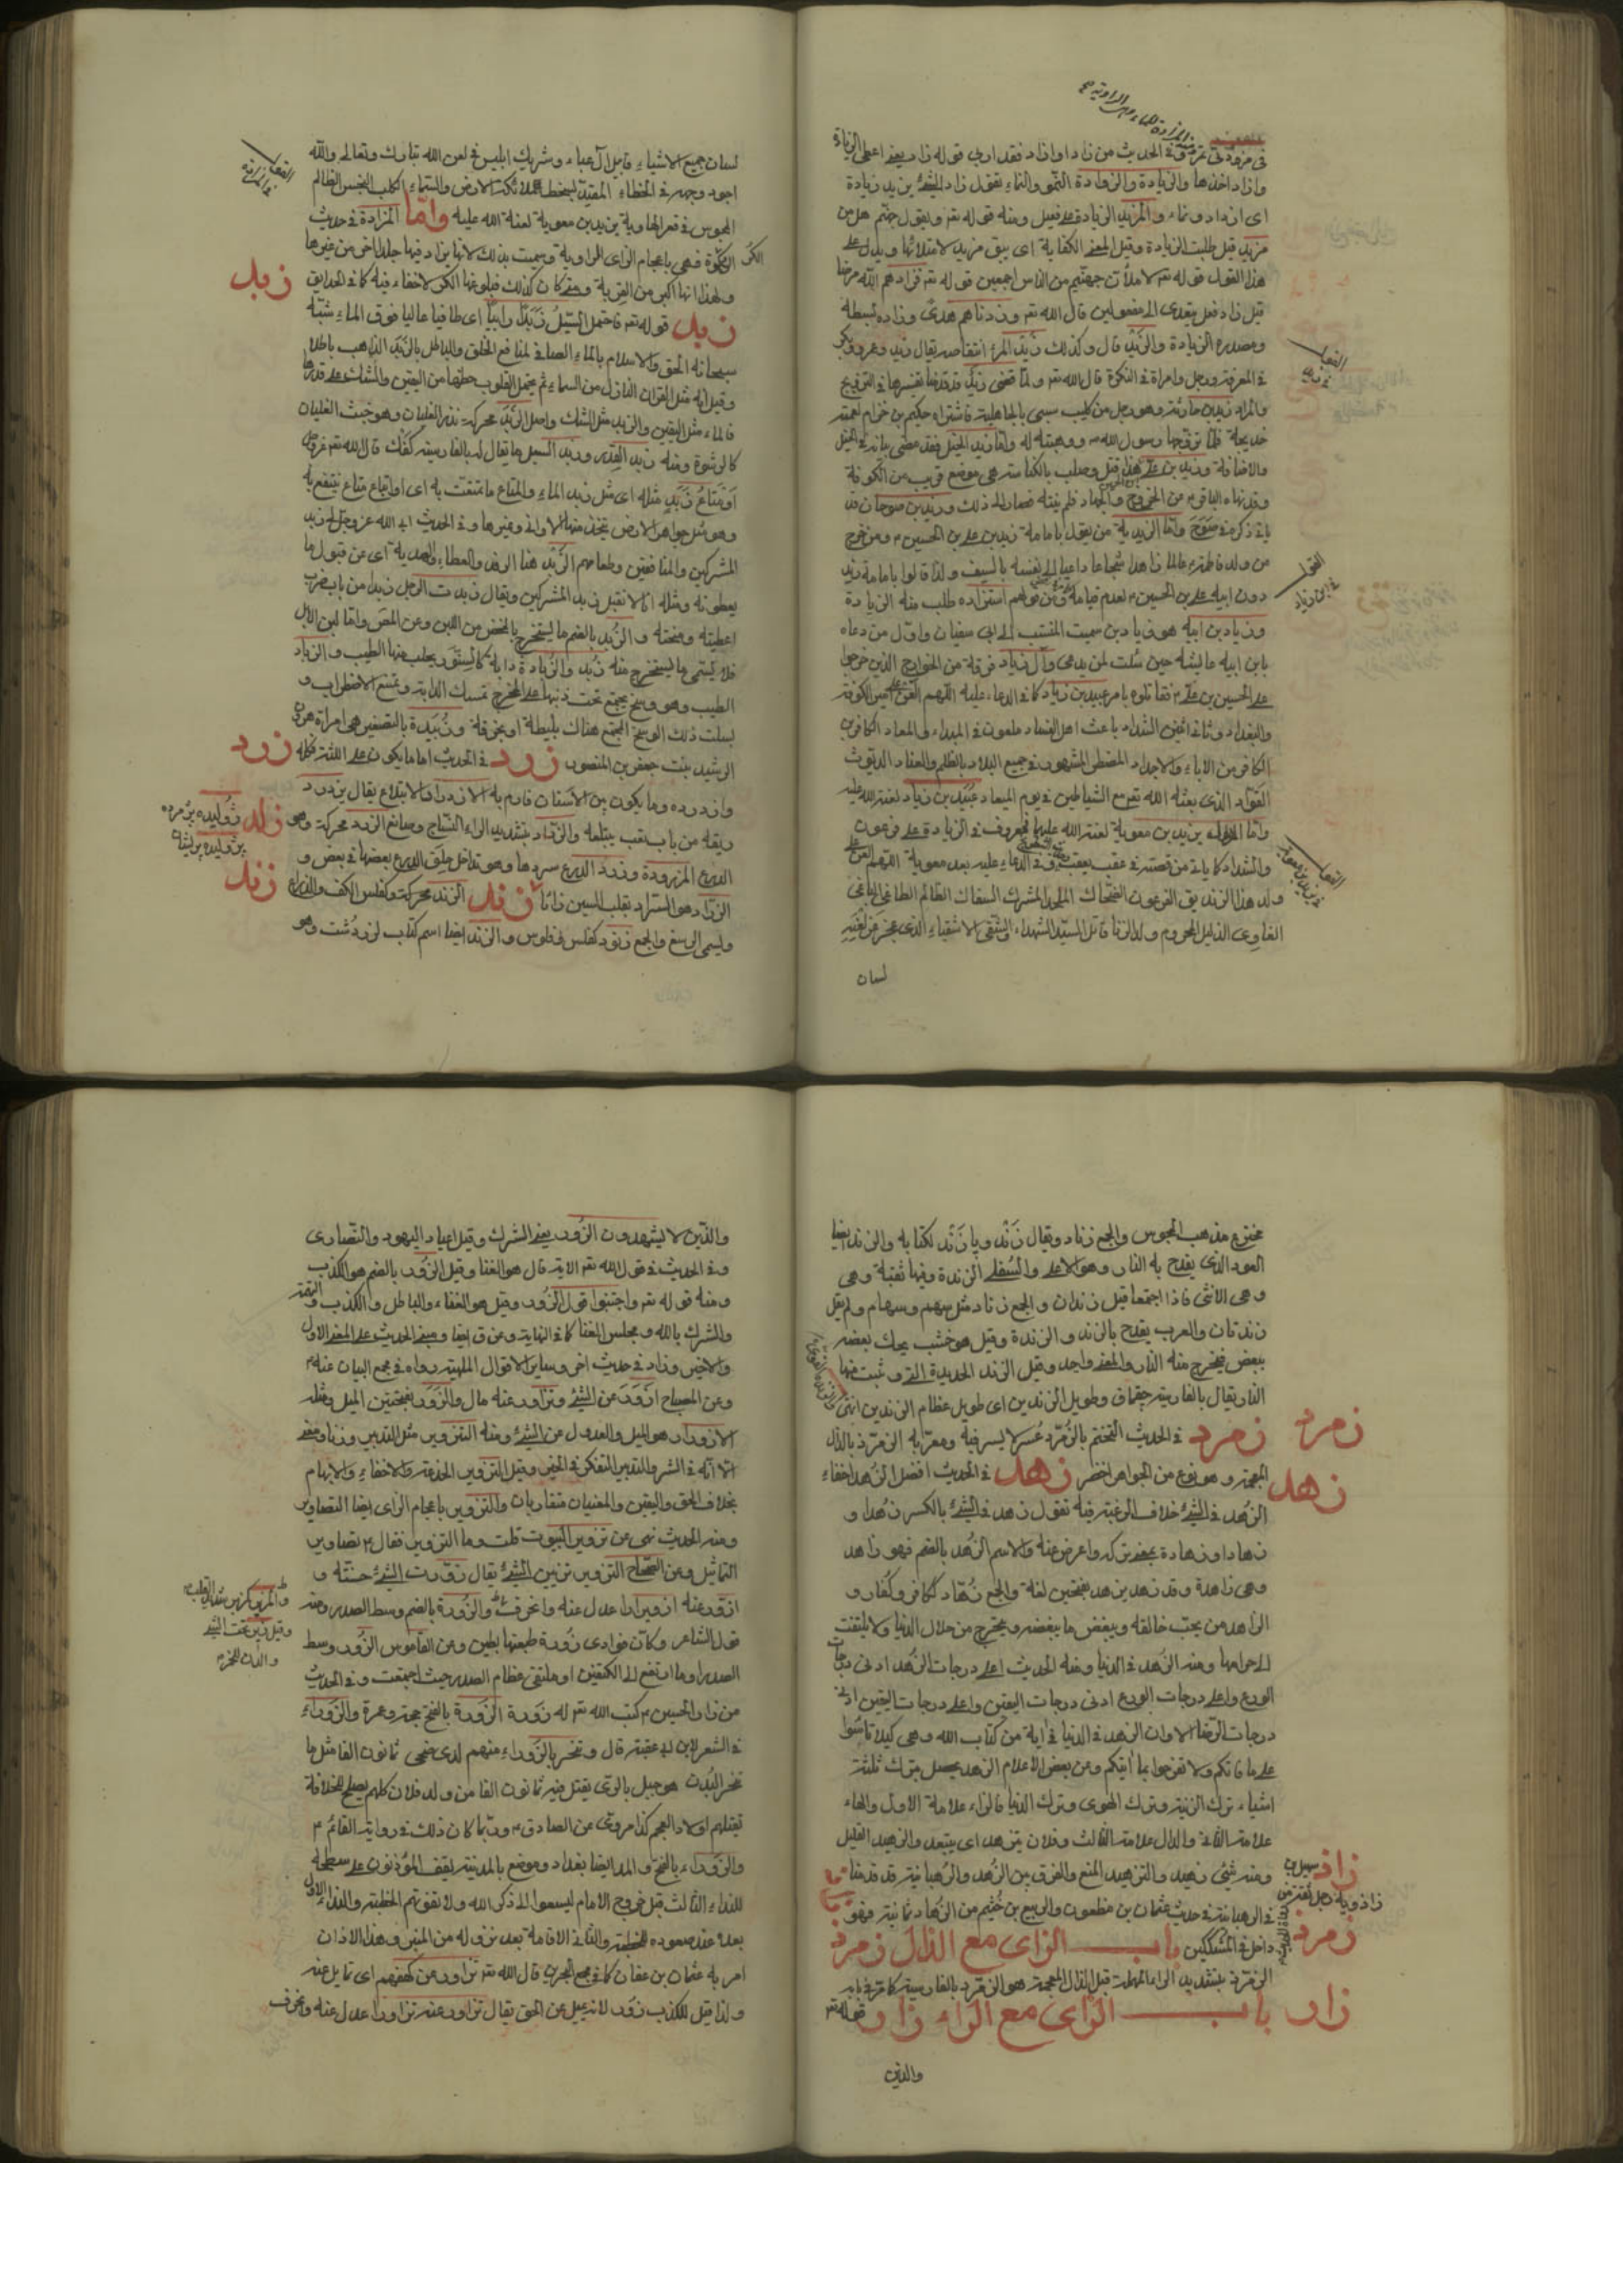 في مزود في تمرة وفي الحديث من زاد او ازداد فقد اربى قوله زاد يعنى اعطى الزيادة
وازداد اخذها والزيادة والزوادة النمو والنماء تقول زاد الشئ يزيد زيادة
اى ازداد ونماء والمزيد الزيادة على فعيل ومنه قوله تعه ويقول جهنم هل من
مزيد قيل طلبت الزيادة وقيل المعنى الكفاية اى يبق مزيد لامتلائها ويدل على
هذا القول قوله تعه لاملأن جهنم من الناس اجمعين قوله تعه فزادهم الله مرضا
قيل زاد فعل يتعدى الى مفعولين قال الله تعه وزدناهم هدى وزاده بسطة
ومصدره الزيادة والزيد قال وكذلك زيد المرء انتقاصه يقال زيد وعمرو وبكر
في المعرفة ورجل وامراة في النكرة قال الله تعه ولما قضى زيد قد قدمنا تفسيرها في التزويج
والمراد زيد بن حارثة وهو رجل من كليب سبى بالجاهلية فاشتراه حكيم بن خزام لعمته
خديجة فلما تزوجها رسول الله ص ووهبته له واما زيد الخيل فقد مضى بيانه في الخيل
والاضافة وزيد بن على هذا قتل وصلب بالكناسة هى موضع قريب من الكوفة
وقد نهاه الباقر م من الخروج والجهاد فلم ينته فصار الى ذلك وزيد بن صوحان قد
ياتى ذكره في صوح واما الزيدية من يقول بامامة زيد بن على بن الحسين م ومن خرج
من ولد فاطمة عالما زاهدا شجاعا داعيا الى نفسه بالسيف ولذا قالوا بامامة زيد
دون ابيه على بن الحسين م لعدم قيامه وقولهم استزاده طلب منه الزيادة
وزياد بن ابيه هو زياد بن سمية المنتسب الى ابى سفيان واول من دعاه
بابن ابيه عايشة حين سئلت لمن يدعى وآل زياد فرقة من الخوارج الذين خرجوا
على الحسين بن على م فقاتلوه بامر عبيد بن زياد كما في الدعاء عليه اللهم العن على امير الكوفة
والبغداد وثانى اثنين الشداد باعث اهل الفساد ملعون في المبداء والمعاد الكافر بن
الكافر من الاباء والاجداد المضطر المشهور في جميع البلاد بالظلم والعناد الديوث
القواد الذى يعثه الله تعه مع الشياطين في يوم الميعاد عبيد بن زياد لعنة الله عليه
واما يزيد بن معوية لعنة الله عليهما فمعروف في الزيادة على فرعون
والشداد كما ياتى من قصته في عقب يعقب وفي الدعاء عليه بعد معوية اللهم العن على
ولد هذا الزنديق الفرعون الضحاك الملحد المشرك السفاك الظالم الطاغى الباغى
الغاوى الذليل المحروم ولد الزنا قاتل السيد الشهداء والشقى الاشقياء الذى عجز عن لعنه
لسان
لسان جميع الاشياء قابيل آل عباء وشريك ابليس في لعن الله تبارك وتعالى والله
المحبوس في قعر الهاوية يزيد بن معوية لعنة الله عليه واما المزادة في حديث
الكر فهى باعجام الزاى الراوية وسميت بذلك لانها يزاد فيها جلد اخر من غيرها
ولهذا انها اكبر من القربة وحتى كان كذلك فبلوغها الكر لاخفاء فيه كما في الحدايق
زبد قوله تعه فاحتمل السيل زبدا رابيا اى طافيا عاليا فوق الماء شبه
سبحانه الحق والاسلام بالماء الصافى لمنافع الخلق والباطل بالزبد الذاهب باطلا
وقيل انه مثل القران النازل من السماء ثم يحتمل القلوب حظها من اليقين والشك على قدرها
فالماء مثل اليقين والزبد مثل الشك واصل الزبد محركة زبد الغليان وهو خبث الغليان
كالرغوة ومنه زبد القدر وزبد السيل ما يقال له بالفارسية كفك قال الله تعه عز وجل
او متاع زبد مثله اى مثل زبد الماء والمتاع ما تمتعت به اى او ابتغاء متاع ينتفع به
وهو مثل جواهر الارض تتخذ منها الاوانى وغيرها وفي الحديث ابى الله عز وجل لى زبد
المشركين والمنافقين وطعامهم الزبد هنا الرفد والعطاء والهدية اى عن قبول ما
يعطونه ومثله انا لا نقبل زبد المشركين ويقال زبدت الرجل زبدا من باب ضرب
اعطيته ومنحته والزبد بالضم ما يستخرج بالمخض من اللبن وعن المصر واما لبن الابل
فلا يسمى ما يستخرج منه زبد والزبادة دابة كالسنور يجلب منها الطيب والزباد
الطيب وهو وسخ يجتمع تحت ذنبها على المخرج تمسك الدابة وتمنع الاضطراب و
يسلت ذلك الوسخ المجتمع هناك بليطة او بخرقة وزبيدة بالتصغير هى امراة هرون
الرشيد بنت جعفر بن المنصور زرد في الحديث اما ما يكون على اللثة فكله
وازدرده وما يكون بين الاسنان فارم به الازدراد الابتلاع يقال يزدرد
ريقه من باب تعب يبتلعه والزراد بتشديد الراء النساج وصانع الزرد محركة وهو
الدرع المزرودة وزرد الدرع سردها وهو تداخل حلق الدرع بعضها في بعض و
الزراد هو السراد بقلب السين زائا زند الزند محركة وكفلس الكف والذراع
وليسمى الرسغ والجمع زنود كفلس وفلوس والزند ايضا اسم كتاب لزردشت وهو
زبد
زرد
زند
مخترع مذهب المجوس والجمع زناد ويقال زند وپازند لكتابه والزند ايضا
العود الذى يقدح به النار وهو الاعلى والسفلى الزندة وفيها ثقبة وهى
وهى الانثى فاذا اجتمعا قيل زندان والجمع زناد مثل سهم وسهام ولم يقل
زندتان والعرب يقدح بالزند والزندة وقيل هو خشب يحك بعضه
ببعض فيخرج منه النار والمعنى واحد وقيل الزند الحديدة التى وثبت منها
النار يقال بالفارسية چقماق وطويل الزندين اى طويل عظام الزندين انتهى
زمرد في الحديث التختم بالزمرد عسر لا يسر فيه ومعرّبه الزمرّذ بالذال
المعجمة وهو نوع من الجواهر اخضر زهد في الحديث افضل الزهد اخفاء
الزهد في الشئ خلاف الرغبة فيه تقول زهد في الشئ بالكسر زهدا و
زهادا وزهادة بمعنى تركه واعرض عنه والاسم الزهد بالضم فهو زاهد
وهى زاهدة وقد زهد يزهد بفتحتين لغة والجمع زهاد ككافر وكفار و
الزاهد من يحب خالقه ويبغض ما يبغضه ويتحرج من حلال الدنيا ولا يلتفت
الى حرامها ومنه الزهد في الدنيا ومنه الحديث اعلى درجات الزهد ادنى درجات
الورع واعلى درجات الورع ادنى درجات اليقين واعلى درجات اليقين ادنى
درجات الرضا الا وان الزهد في الدنيا في اية من كتاب الله وهى كيلا تاسوا
على ما فاتكم ولا تفرحوا بما اتيكم وعن بعض الاعلام الزهد يحصل بترك ثلثة
اشياء ترك الزينة وترك الهوى وترك الدنيا فالزاء علامة الاول والهاء
علامة الثانى والدال علامة الثالث وفلان يتزهد اى يتعبد والزهيد القليل
ومنه شئ زهيد والتزهيد المنع والفرق بين الزهد والرهبانية قد قدمنا
في الرهبانية في حديث عثمان بن مظعون والربيع بن خثيم من الزهاد ثمانية فهو
داخل في المشككين باب الزاى مع الذال زمرذ
الزمرّذ بتشديد الراء المهملة قبل الذال المعجمة هو الزمرد بالفارسية كما مر في بابه
باب الزاى مع الراء زار قوله تعه
زمرد
زهد
زاذ
زاذويه رجل
زمرذ
زار
والذين
والذين لا يشهدون الزور يعنى الشرك وقيل اعياد اليهود والنصارى
وفي الحديث في قول الله تعه الاية قال هو الغنا وقيل الزور بالضم هو الكذب
ومنه قوله تعه واجتنبوا قول الزور وقيل هو الغناء والباطل والكذب والتهمة
والشرك بالله ومجلس الغنا كما في النهاية وعن ق ايضا ومعنى الحديث على المعنى الاول
والاخص وزاد في حديث اخر وساير الاقوال الملهية رواه في مجمع البيان عنه م
وعن المصباح ازور عن الشئ وتزاور عنه مال والزور بفتحتين الميل ومثله
الازورار هو الميل والعدول عن الشئ ومنه التزوير مثل التدبير وزنا ومعنى
الا انه في الشر والتدبير التفكر في الخير وقيل التزوير الخدعة والاخفاء والابهام
بخلاف الحق واليقين والمعنيان متقاربان والتزوير باعجام الزاى ايضا التصاوير
ومنه الحديث نهى عن تزوير البيوت قلت وما التزوير فقال م تصاوير
التماثيل وعن الصحاح التزوير تزيين الشئ يقال زورت الشئ حسنته و
ازور عنه ازويرارا عدل عنه وانحرف والزورة بالضم وسط الصدر ومنه
قول الشاعر وكان فوادى زورة طبعتها بطين وعن القاموس الزور وسط
الصدر او ما ارتفع الى الكتفين او ملتقى عظام الصدر حيث اجتمعت وفي الحديث
من زار الحسين م كتب الله تعه له زورة الزورة بالفتح حجة وعمرة والزوراء
في الشعر لابن ابى عقبة قال وتنحر بالزوراء منهم لدى ضحى ثمانون الفا مثل ما
تنحر البدن هو جبل بالرى يقتل فيه ثمانون الفا من ولد فلان كلهم يصلح للخلافة
يقتلهم اولاد العجم كذا مروى عن الصادق م وربما كان ذلك في رواية القائم م
والزوراء بالفتح والمد ايضا بغداد وموضع بالمدينة يقف المؤذنون على سطحه
للنداء الثالث قبل خروج الامام ليسعوا الى ذكر الله ولا تفوتهم الخطبة والنداء الاول
بعده عند صعوده للخطبة والثانى الاقامة بعد نزوله من المنبر وهذا الاذان
امر به عثمان بن عفان كما في مجمع البحرين قال الله تعه تزاور عن كهفهم اى تمايل عنه
ولذا قيل للكذب زور لانه يميل عن الحق يقال تزاور عنه تزاورا عدل عنه وانحرف